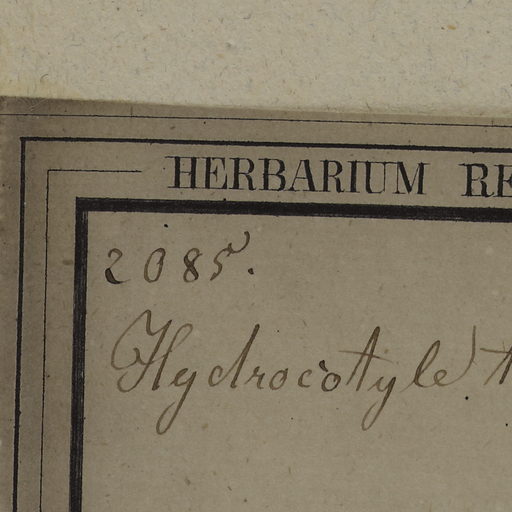 HERBARIUM RE
2085.
Hydrocotyle